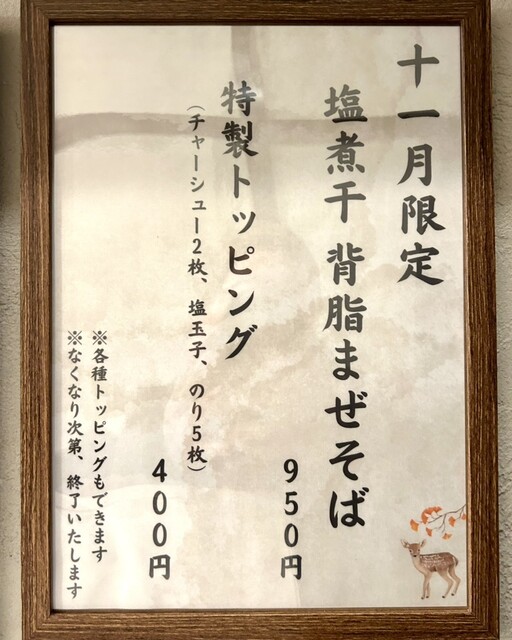 十一月限定
塩煮干 背脂まぜそば
950円
特製トッピング
(チャーシュー2枚、塩玉子、のり5枚)
400円
※各種トッピングもできます
※なくなり次第、終了いたします